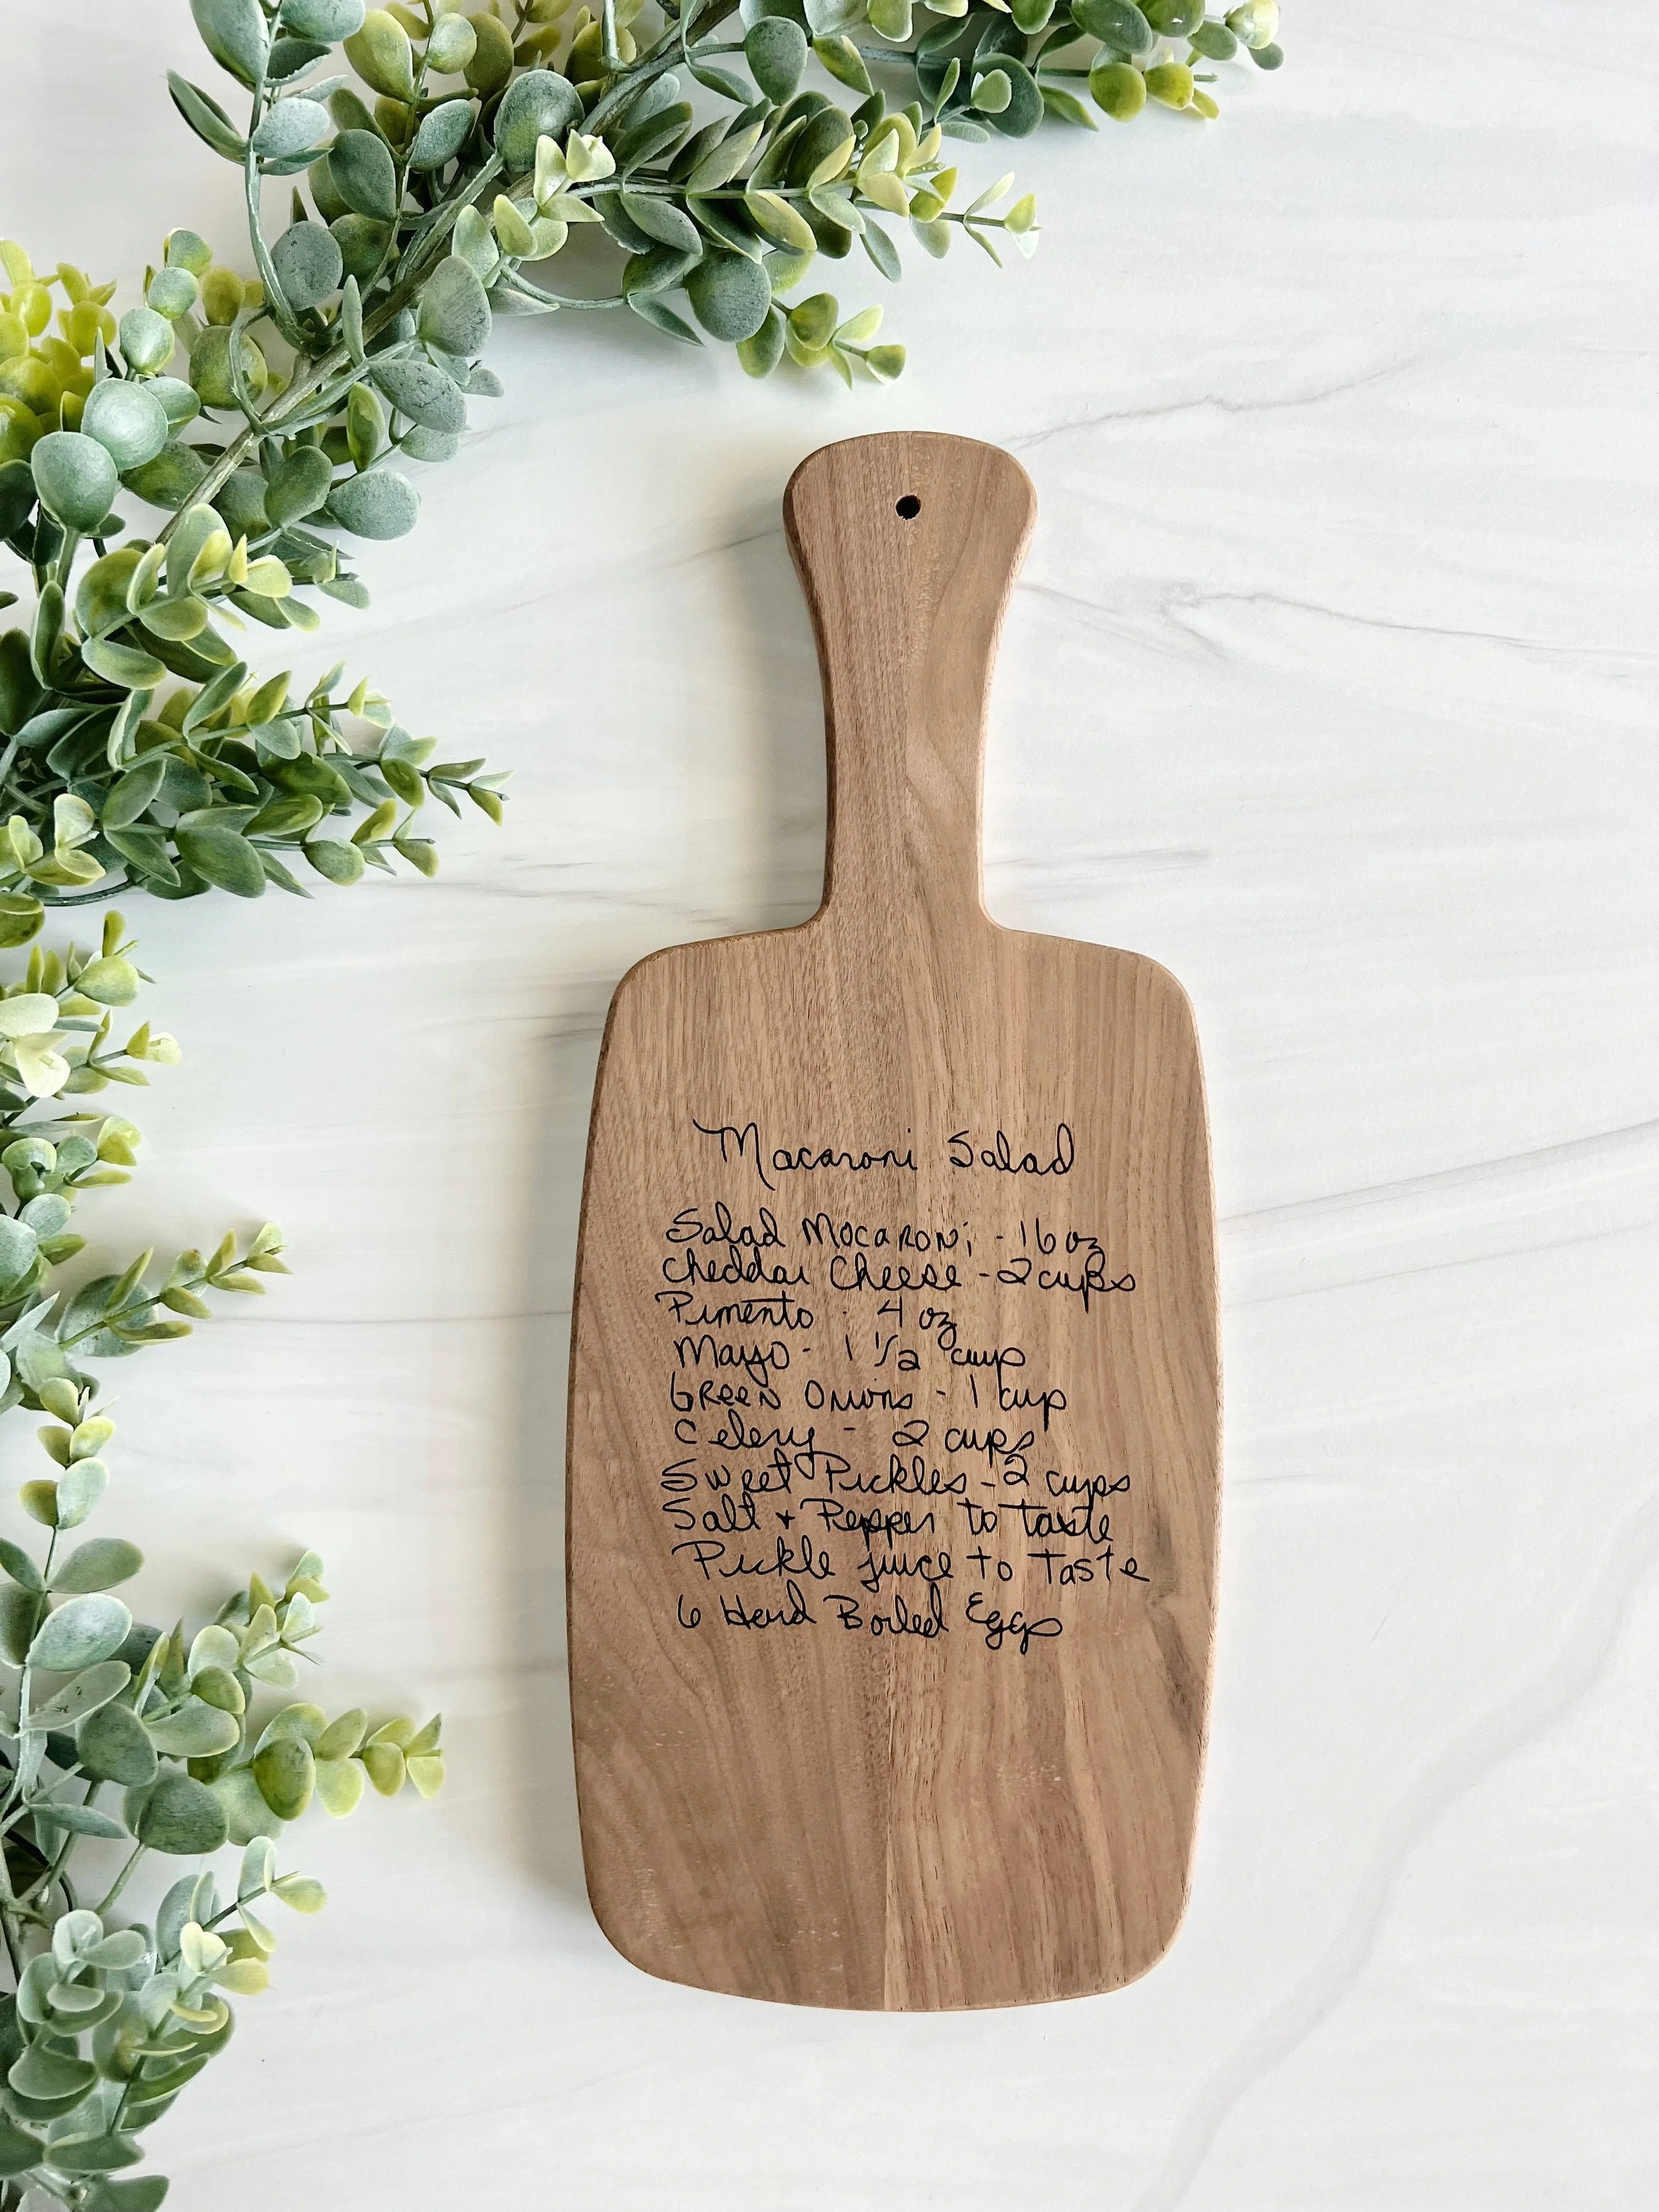 Macaroni Salad
Salad Macaroni - 16 oz
Cheddar Cheese - 2 cups
Pimento - 4 oz
Mayo - 1 1/2 cup
Green Onions - 1 cup
Celery - 2 cups
Sweet Pickles - 2 cups
Salt + Pepper to taste
Pickle juice to taste
6 Hard Boiled Eggs